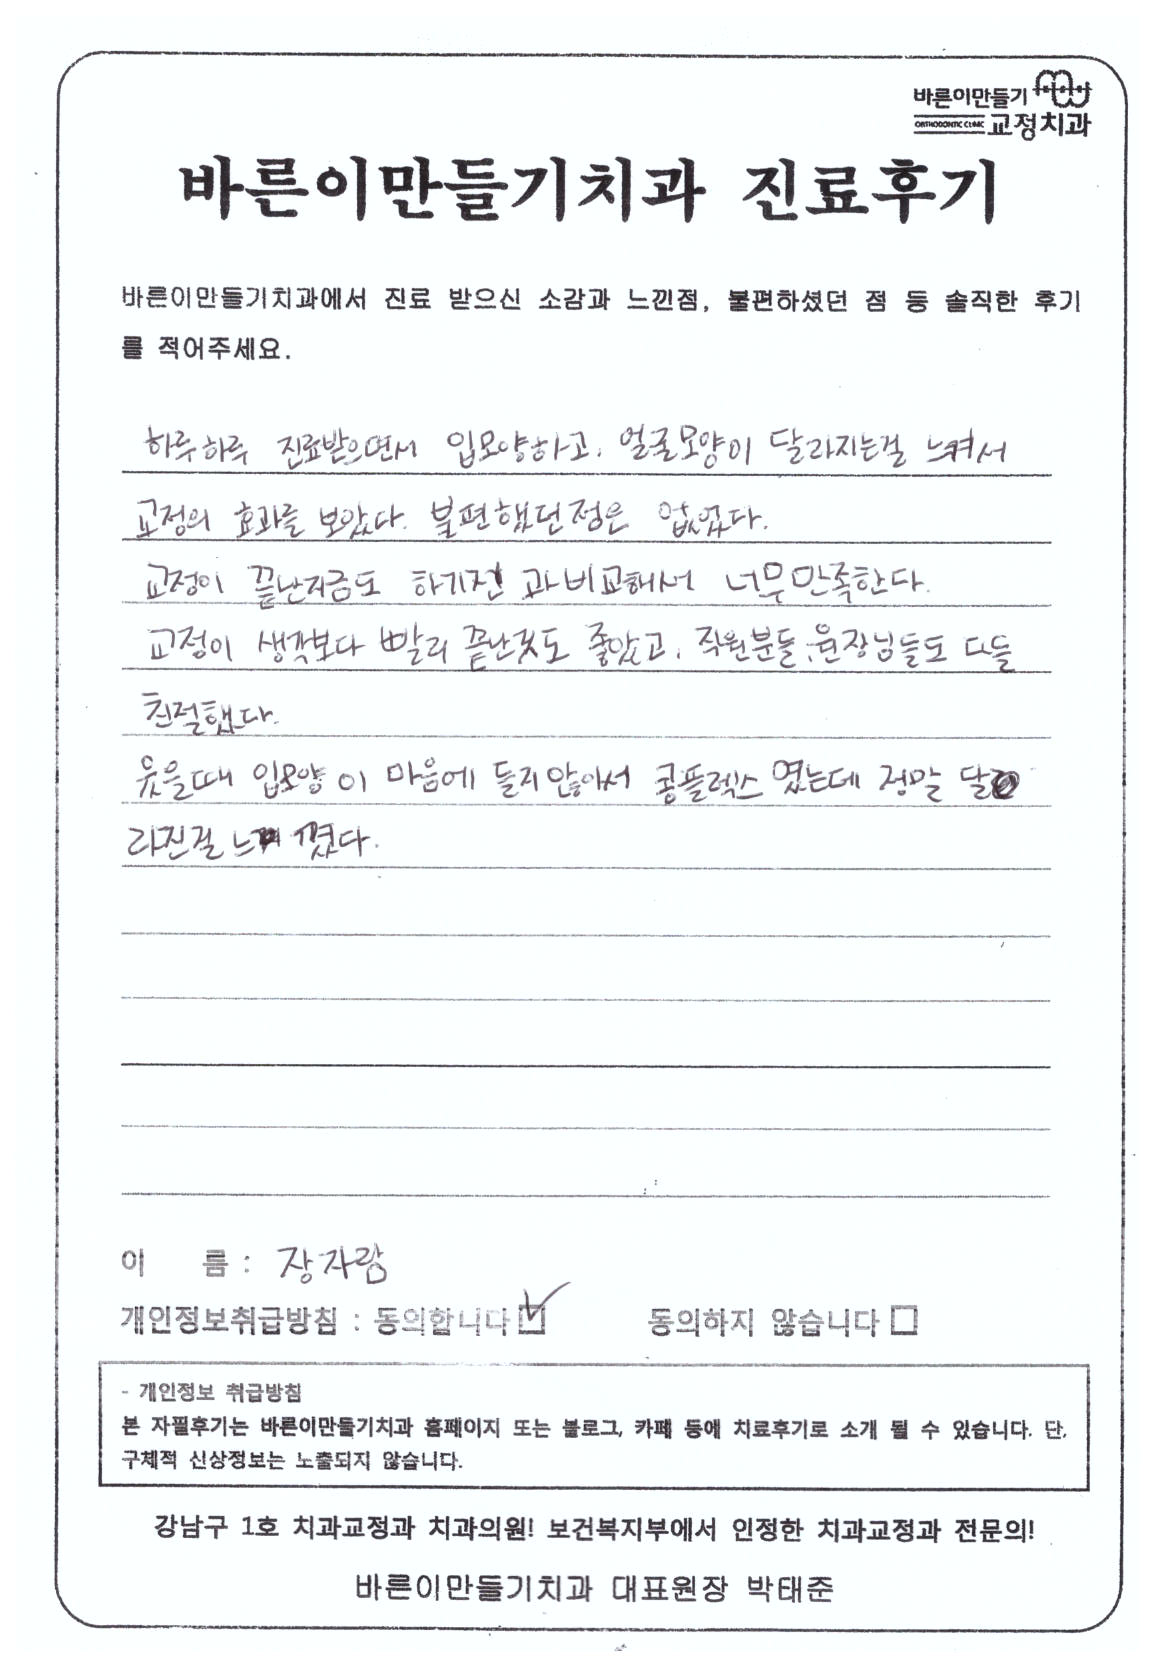 바른이만들기
ORTHODONTIC CLINIC 교정치과
바른이만들기치과 진료후기
바른이만들기치과에서 진료 받으신 소감과 느낀점, 불편하셨던 점 등 솔직한 후기
를 적어주세요.
하루하루 진료받으면서 입모양하고, 얼굴모양이 달라지는걸 느껴서
교정의 효과를 보았다. 불편했던점은 없었다.
교정이 끝난지금도 하기전과 비교해서 너무만족한다.
교정이 생각보다 빨리 끝난것도 좋았고, 직원분들, 원장님들도 다들
친절했다.
웃을때 입모양이 마음에 들지않아서 콤플렉스였는데 정말 달
라진걸 느꼈다.
이 름 : 장자람
개인정보취급방침 : 동의합니다 ☑ 동의하지 않습니다 □
- 개인정보 취급방침
본 자필후기는 바른이만들기치과 홈페이지 또는 블로그, 카페 등에 치료후기로 소개 될 수 있습니다. 단,
구체적 신상정보는 노출되지 않습니다.
강남구 1호 치과교정과 치과의원! 보건복지부에서 인정한 치과교정과 전문의!
바른이만들기치과 대표원장 박태준